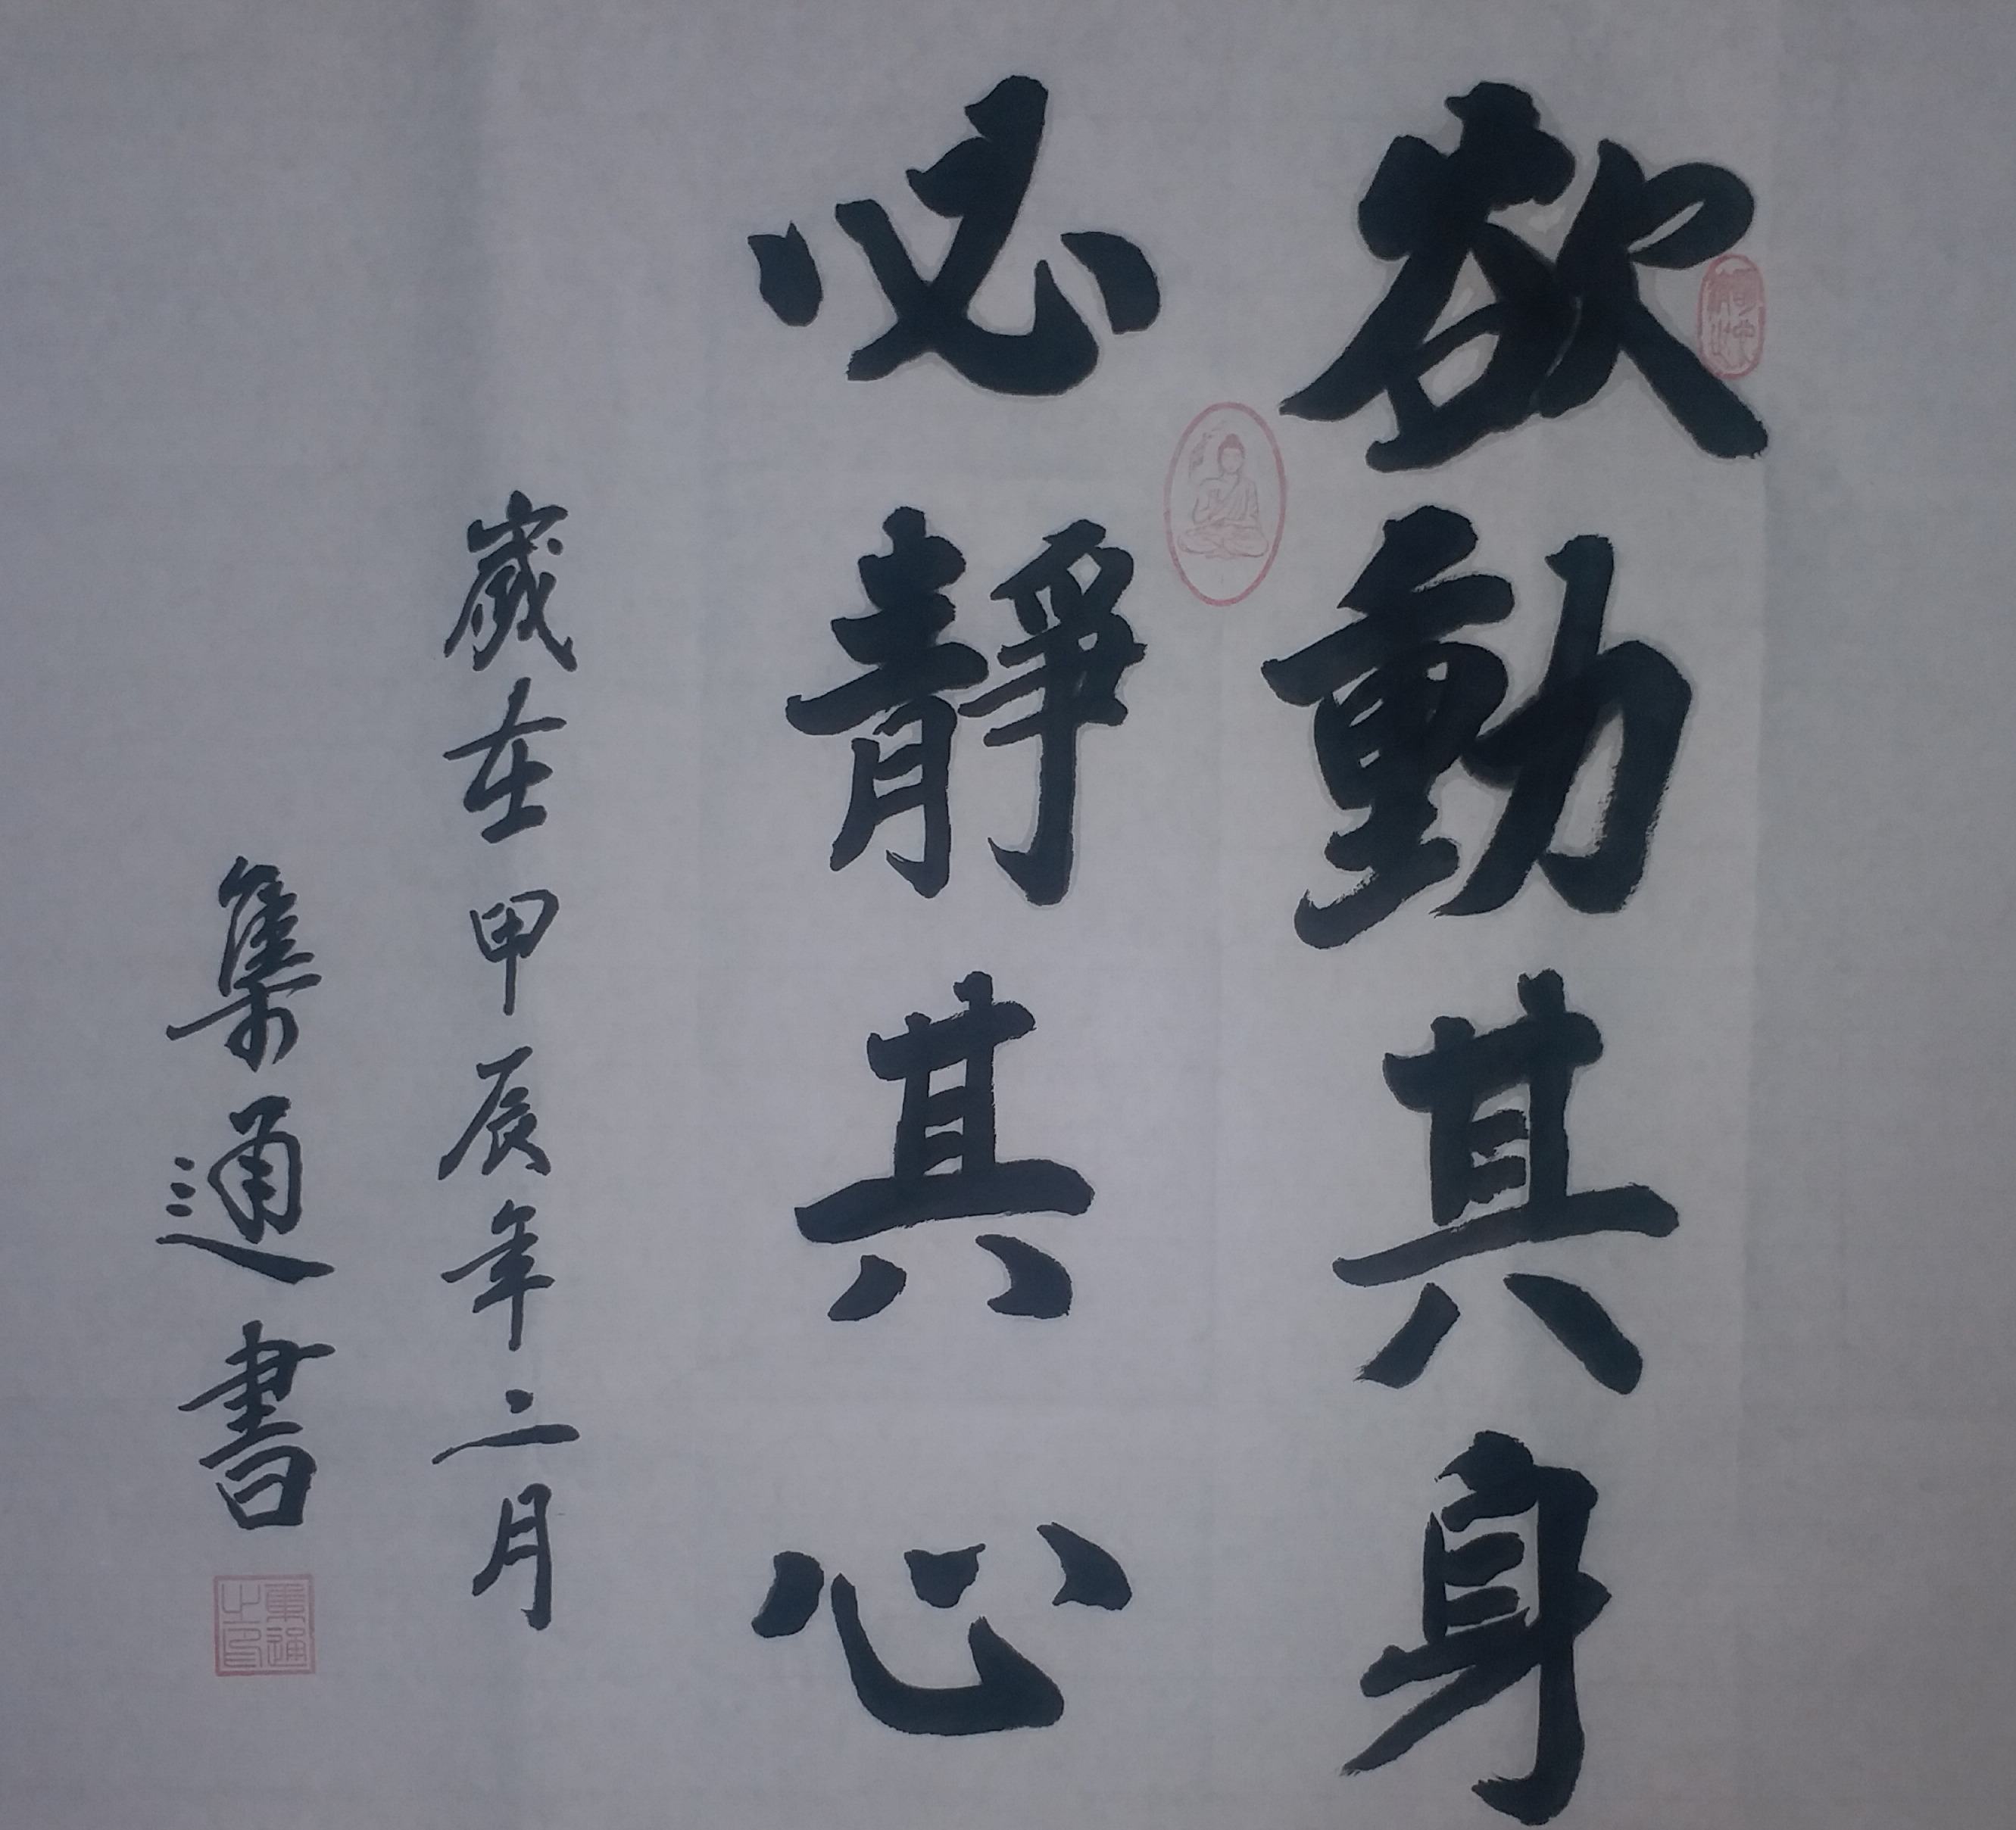 欲動其身
必靜其心
歲在甲辰年二月
集通書